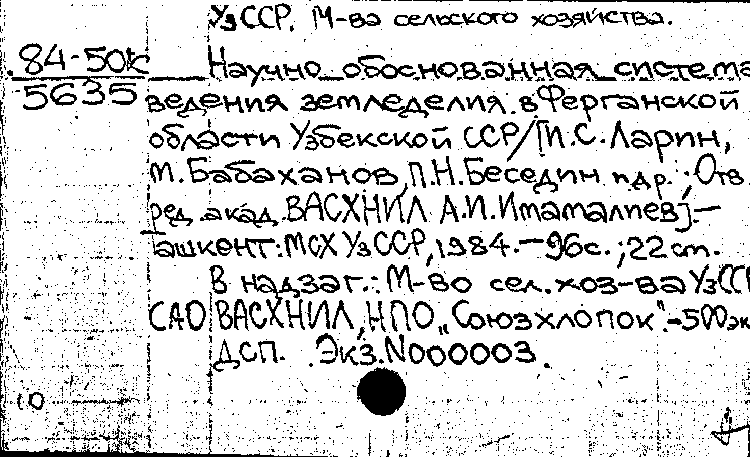 УзССР. М-ва сельского хозяйства.
84-50К
5635
Научно обоснованная система
ведения земледелия в Ферганской
области Узбекской ССР/[И.С. Ларин,
М. Бабаханов, П.Н. Беседин и др.; Отв.
ред. акад. ВАСХНИЛ А.И. Имамалиев].—
Ташкент: МСХ УзССР, 1984.—96с.; 22см.
В надзаг.: М-во сел. хоз-ва УзССР
САО ВАСХНИЛ, НПО „Союзхлопок".-500 эк
ДСП. Экз. №000003.
10